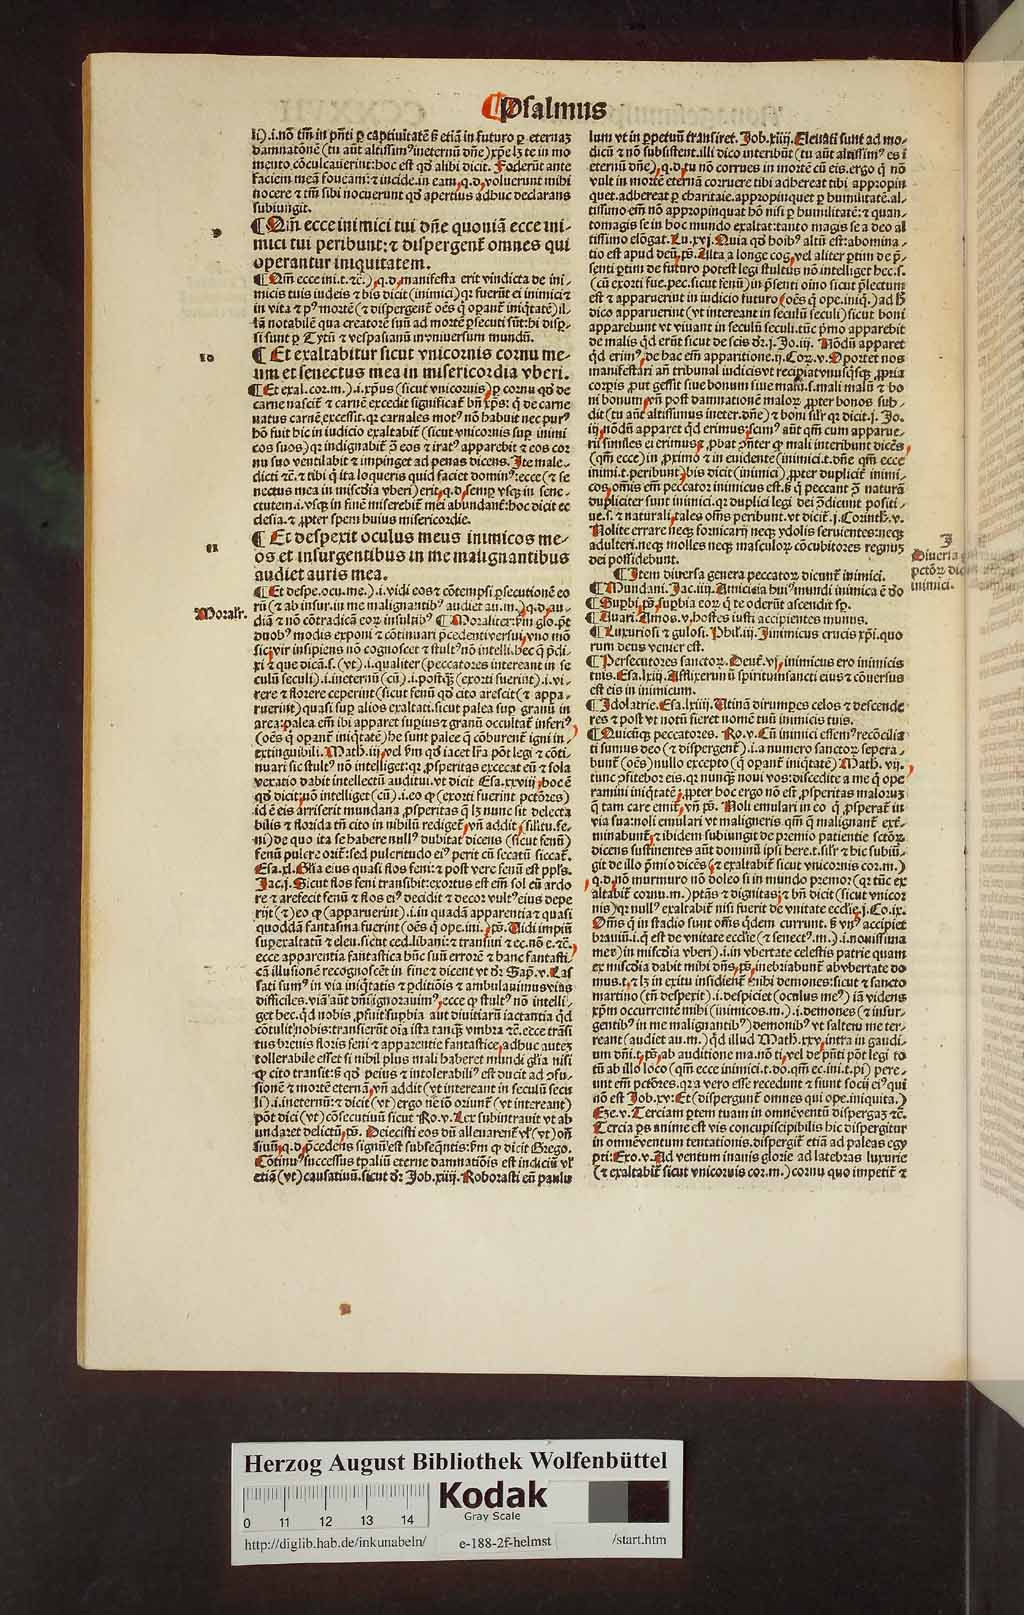 Psalmus
li).i.nō tm̄ in pn̄ti ꝑ captiuitatē ß etiā in futuro ꝑ eternaꝫ
damnatōnē (tu aūt altissimꝰ ineternū dn̄e) xp̄e lꝫ te in mo
mento cōculcauerint: hoc est qđ alibi dicit. Foderūt ante
faciem meā foueam: ⁊ incide. in eam, q.d. voluerunt mihi
nocere ⁊ tm̄ sibi nocuerunt qđ apertius adhuc declarans
subiungit.
9
¶ Qm̄ ecce inimici tui dn̄e quoniā ecce ini-
mici tui peribunt: ⁊ dispergent̄ omnes qui
operantur iniquitatem.
¶ Qm̄ ecce ini.t. ⁊c̄.) q.d. manifesta erit vindicta de ini-
micis tuis iudeis ⁊ bis dicit (inimici) qꝛ fuerūt ei inimici ⁊
si sunt ꝑ Tytū ⁊ vespasianū in vniuersum mundū.
10
¶ Et exaltabitur sicut vnicornis cornu me-
um et senectus mea in misericordia vberi.
¶ Et exal. cor. m.) .i. xp̄us (sicut vnicornis) ꝑ cornu qđ de
carne nascit̄ ⁊ carnē excedit significat̄ bn̄ xp̄s: q̄ de carne
natus carnē excessit. qꝛ carnales motꝰ nō habuit nec purꝰ
hō fuit hic in iudicio exaltabit̄ (sicut vnicornis suꝑ inimi
cos suos) qꝛ indignabit̄ ꝯ̄ eos ⁊ iratꝰ apparebit ⁊ eos cor
nu suo ventilabit ⁊ impinget ad penas dicens. Ite male-
dicti ⁊c̄. ⁊ tibi q̄ ita loqueris quid faciet dominꝰ: ecce (⁊ se
nectus mea in misc̄dia vberi) erit, q.d. semꝑ vsqꝫ in sene-
clesia. ⁊ ꝓpter spem huius misericordie.
11
¶ Et despexit oculus meus inimicos me-
os et insurgentibus in me malignantibus
audiet auris mea.
¶ Et despe. ocu. me.) .i. vidi eos ⁊ cōtempsi ꝑsecutionē eo
rū (⁊ ab insur. in me malignantibꝰ audiet au. m.) q.d. au-
Moralr̄.
diā ⁊ nō cōtradicā eoꝝ insultibꝰ ¶ Moraliter: ẜm glo. p̄t
duobꝰ modis exponi ⁊ cōtinuari p̄cedenti versui, vno mō
sic, vir insipiens nō cognoscet ⁊ stultꝰ nō intelli. hec q̄ p̄di-
xi ⁊ que dicā. s. (vt) .i. qualiter (peccatores intereant in se
culū seculi) .i. ineternū (cū) .i. postqꝫ̄ (exorti fuerint) .i. vi-
rere ⁊ florere ceperint (sicut fenū qđ cito arescit (⁊ appa-
ruerint) quasi suꝑ alios exaltati. sicut palea suꝑ granū in
area: palea em̄ ibi apparet suꝑius ⁊ granū occultat̄ inferiꝰ
(oēs q̄ operant̄ iniq̄tatē) he sunt palee q̄ cōburent̄ igni in-
extinguibili. Math. iij, vel ẜm qđ iacet lr̄a pōt legi ⁊ cōti-
nuari sic stultꝰ nō intelliget: qꝛ ꝓsperitas excecat eū ⁊ sola
vexatio dabit intellectū auditui. vt dicit Esa. xxviij, hoc ē
qđ dicit: nō intelliget (cū) .i. eo ꝙ (exorti fuerint pctōres)
id ē eis arriserit mundana ꝓsperitas q̄ lꝫ nunc sit delecta
bilis ⁊ florida tn̄ cito in nihilū rediget̄, vn̄ addit, siℓℓtu. fe.
ni) de quo ita se habere nullꝰ dubitat dicens (sicut fenū)
fenū pulcre orit̄: sed pulcritudo eiꝰ perit cū seccatū siccat̄.
Esa. xl. Gl̄ia eius quasi flos feni: ⁊ post vere fenū est ppl̄s.
Jac. j. Sicut flos feni transibit: exortus est em̄ sol cū ardo
re ⁊ arefecit fenū ⁊ flos eiꝰ decidit ⁊ decor vultꝰ eius depe
rijt (⁊) eo ꝙ (apparuerint) .i. in quadā apparentia ⁊ quasi
quoddā fantasma fuerint (oēs q̄ ope. ini., p̄s. Vidi impiū
suꝑexaltatū ⁊ eleu. sicut ced. libani: ⁊ transiui ⁊ ec. nō e. ⁊c̄.
ecce apparentia fantastica hn̄c suū errorē ⁊ hanc fantasti
cā illusionē recognoscēt in fine ⁊ dicent vt dr̄ Sap̄. v. Las
sati sumꝰ in via iniq̄tatis ⁊ ꝑditiōis ⁊ ambulauimus vias
difficiles. viā aūt dn̄i ignorauimꝰ, ecce ꝙ stultꝰ nō intelli-
get hec. qđ nobis ꝓfuit suꝑbia aut diuitiarū iactantia qđ
cōtulit nobis: transierūt oīa ista tanqꝫ̄ vmbra ⁊c̄. ecce trāsi
tus breuis floris feni ⁊ apparentie fantastice, adhuc auteꝫ
tollerabile esset si nihil plus mali haberet mundi gl̄ia nisi
ꝙ cito transit: ß qđ peius ⁊ intolerabiliꝰ est ducit ad ꝯfu-
sionē ⁊ mortē eternā, vn̄ addit (vt intereant in seculū secu
li) .i. ineternū: ⁊ dicit (vt) ergo nē iō oriunt̄ (vt intereant)
pōt dici (vt) cōsecutiuū sicut Ro. v. Lex subintrauit vt ab
undaret delictū, p̄s. Deiecisti eos dū alleuarent̄ vl̓ (vt) oñ
siuū, q.d. p̄cedens signū est subseq̄ntis: ẜm ꝙ dicit Grego.
Cōtinuꝰ successus tꝑaliū eterne damnatiōis est indiciū vl̓
etiā (vt) causatiuū. sicut dr̄ Job. xiiij. Roborasti eū paulu
lum vt in ꝑpetuū transiret. Job. xiiij. Eleuati sunt ad mo-
dicū ⁊ nō subsistent. illi dico interibūt (tu aūt altissimꝰ es ī
eternū dn̄e), q.d. tu nō corrues in mortē cū eis. ergo q̄ nō
vult in mortē eternā corruere tibi adhereat tibi appropin
quet. adhereat ꝑ charitatē. appropinquet ꝑ humilitatē. al-
tissimo em̄ nō appropinquat hō nisi ꝑ humilitatē: ⁊ quan-
tomagis se in hoc mundo exaltat: tanto magis se a deo al
tissimo elōgat. Lu. xvj. Quia qđ hoībꝰ altū est: abomina-
tio est apud deū, p̄s. Alta a longe cog., vel aliter ꝑtim de p̄-
senti ꝑtim de futuro potest legi stultus nō intelliget hec. s.
(cū exorti fue. pec. sicut fenū) in p̄senti oīno sicut p̄lectum
est ⁊ apparuerint in iudicio futuro (oēs q̄ ope. iniq.) ad ħ
dico apparuerint (vt intereant in seculū seculi) sicut boni
apparebunt vt viuant in seculū seculi. tūc p̄mo apparebit
de malis qđ erūt sicut de sc̄is dr̄. j. Jo. iij. Nōdū apparet
qđ erimꝰ, de hac em̄ apparitione. ij. Coꝝ. v. Oportet nos
manifestari an̄ tribunal iudicis vt recipiat vnusq̄sqꝫ ꝓpria
corꝑis ꝓut gessit siue bonum siue malū. s. mali malū ⁊ bo
ni bonum, vn̄ post damnationē maloꝝ ꝓpter bonos sub-
dit (tu aūt altissimus ineter. dn̄e) ⁊ boni silr̄ qꝛ dicit. j. Jo.
iij, nōdū apparet qđ erimus: scimꝰ aūt qm̄ cum apparue-
rit similes ei erimus, ꝓbat ꝯn̄ter ꝙ mali interibunt dicēs
(qm̄ ecce) in ꝓximo ⁊ in euidente (inimici. t. dn̄e qm̄ ecce
inimi. t. peribunt) bis dicit (inimici) ꝓpter duplicē inimi-
cos, omīs em̄ peccator inimicus est. ß q̄ peccant ꝯ̄ naturā
dupliciter sunt inimici. qꝛ duplici legi dei ꝯ̄dicunt positi-
ue. s. ⁊ naturali, tales om̄s peribunt. vt dicit̄. j. Corinth. v.
Nolite errare neqꝫ fornicarij neqꝫ ydolis seruientes: neqꝫ
adulteri. neqꝫ molles neqꝫ masculoꝝ cōcubitores regnuꝫ
dei possidebunt.
J
Diuersa
pctōꝝ
inimici.
¶ Item diuersa genera peccatoꝝ dicunt̄ inimici.
¶ Mundani. Jac. iiij. Amicicia huiꝰ mundi inimica ē deo
¶ Suꝑbi, p̄s, suꝑbia eoꝝ q̄ te oderūt ascendit sꝑ.
¶ Auari. Amos. v, hostes iusti accipientes munus.
¶ Luxuriosi ⁊ gulosi. Phil̓. iij. Inimicus crucis xp̄i. quo
rum deus venter est.
¶ Persecutores sanctoꝝ. Deut̄. vj, inimicus ero inimicis
tuis. Esa. lxiij. Afflixerunt spirituīsancti eius ⁊ cōuersus
est eis in inimicum.
¶ Idolatrie. Esa. lxiiij. Vtinā dirumpes celos ⁊ descende
res ⁊ post vt notū fieret nomē tuū inimicis tuis.
¶ Quicūqꝫ peccatores. Ro. v. Cū inimici essemꝰ recōcilia
ti sumus deo (⁊ dispergent̄) .i. a numero sanctoꝝ sepera-
bunt̄ (oēs) nullo excepto (q̄ operant̄ iniq̄tatē) Math. vij.
tunc ꝯfitebor eis. qꝛ nunqꝫ̄ noui vos: discedite a me q̄ ope
ramini iniq̄tatē, ꝓpter hoc ergo nō est ꝓsperitas maloruꝫ
q̄ tam care emit̄, vn̄ p̄s. Noli emulari in eo q̄ ꝓsperat̄ in
via sua: noli emulari vt maligneris qm̄ q̄ malignant̄ ext̄-
minabunt̄, ⁊ ibidem subiungit de premio patientie sctōꝝ
dicens sustinentes aūt dominū ipsi here. t. silr̄ ⁊ hic subiū-
git de illo p̄mio dicēs (⁊ exaltabit̄ sicut vnicornis cor. m.)
q.d. nō murmuro nō doleo si in mundo premor (qꝛ tūc ex
altabit̄ cornu. m.) ptās ⁊ dignitas, ⁊ bn̄ dicit (sicut vnicor
nis) qꝛ nullꝰ exaltabit̄ nisi fuerit de vnitate eccl̄ie. j. Co. ix.
Om̄s q̄ in stadio sunt om̄s qdem currunt. ß vnꝰ accipiet
brauiū. i. q̄ est de vnitate eccl̄ie (⁊ senectꝰ. m.) .i. nouissima
mea) in misc̄dia vberi) .i. in vbertate celestis patrie quam
ex misc̄dia dabit mihi dn̄s, p̄s, inebriabunt̄ ab vbertate do
mus. t. ⁊ lꝫ in exitu insidient̄ mihi demones: sicut ⁊ sancto
martino (tn̄ despexit) .i. despiciet (oculus meꝰ) iā videns
xp̄m occurrentē mihi (inimicos. m.) .i. demones (⁊ insur-
gentibꝰ in me malignantibꝰ) demonibꝰ vt saltem me ter-
reant (audiet au. m.) qđ illud Math. xxv, intra in gaudi-
um dn̄i. t, p̄s, ab auditione ma. nō ti, vel de pn̄ti pōt legi to
tū ab illo loco (qm̄ ecce inimici. t. do. qm̄ ec. ini. t. pi) pere-
unt em̄ pctōres. qꝛ a vero esse recedunt ⁊ fiunt socij eiꝰ qui
nō est Job. xv: Et (dispergunt̄ omnes qui ope. iniquita.)
Eze. v. Terciam ꝑtem tuam in omnē ventū dispergaꝫ ⁊c̄.
Tercia ꝑs anime est vis concupiscipibilis hic dispergitur
in omnē ventum tentationis. dispergit̄ etiā ad paleas egy
pti: Exo. v. Ad ventum inanis glorie ad latebras luxurie
(⁊ exaltabit̄ sicut vnicornis cor. m.) cornu quo impetit̄ ⁊
Herzog August Bibliothek Wolfenbüttel
Kodak
Gray Scale
0 11 12 13 14
http://diglib.hab.de/inkunabeln/ e-188-2f-helmst /start.htm